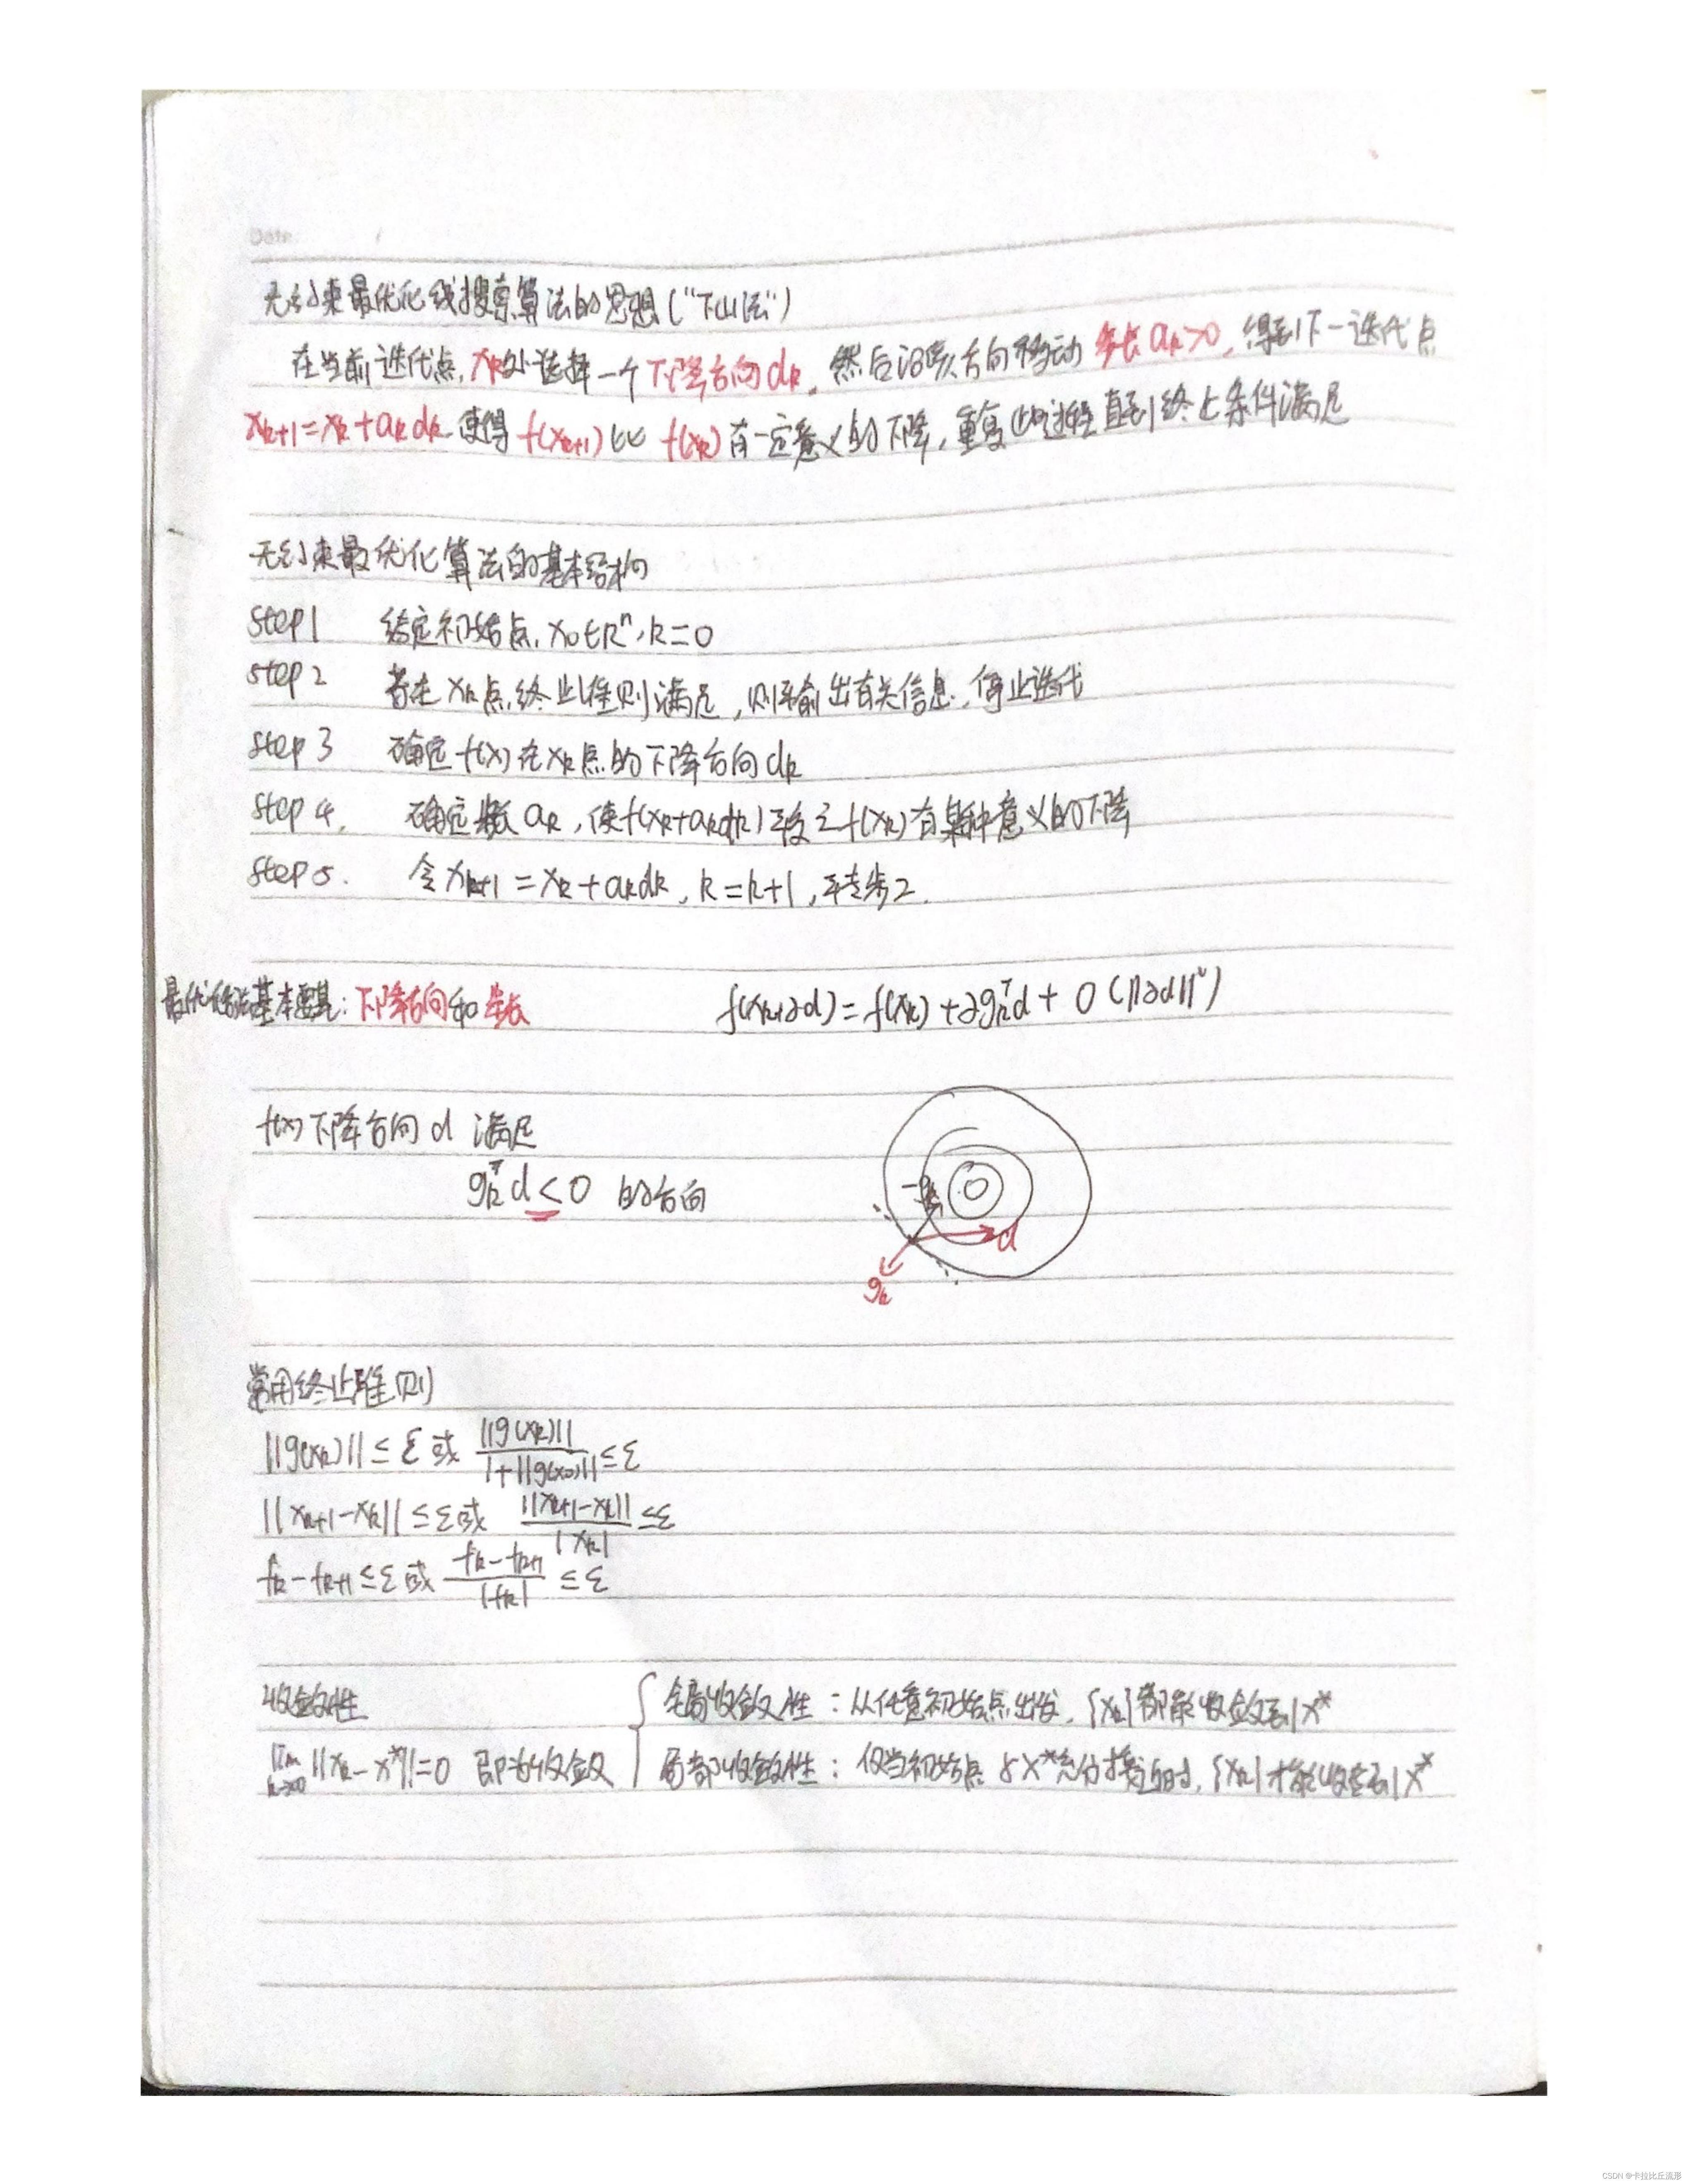 Date: /
无约束最优化线搜索算法的思想("下山法")
在当前迭代点,xk处选择一个下降方向dk,然后沿该方向移动步长ak>0,得到下一迭代点
xk+1=xk+akdk 使得 f(xk+1) 比 f(xk) 有一定意义的下降,重复此过程直到终止条件满足
无约束最优化算法的基本结构
Step1 给定初始点,x0∈R^n,k=0
step2 若在xk点终止准则满足,则输出有关信息,停止迭代
step3 确定f(x)在xk点的下降方向dk
Step4. 确定 ak,使f(xk+akdk)较之f(xk)有某种意义的下降
Step5. 令xk+1=xk+akdk,k=k+1,转步2.
最优化算法基本要素:下降方向和步长 f(xk+∂d)=f(xk)+∂gk^T d+O(||∂d||²)
f(x)下降方向d满足
gk^T d<0 的方向
-gk
d
gk
常用终止准则
||g(xk)||≤ε或 ||g(xk)||/(1+||g(x0)||)≤ε
||xk+1-xk||≤ε或 ||xk+1-xk||/|xk|≤ε
fk-fk+1≤ε或 (fk-fk+1)/|fk|≤ε
收敛性 { 全局收敛性:从任意初始点出发,{xk}都能收敛到x*
lim k→∞ ||xk-x*||=0 即为收敛 局部收敛性:仅当初始点与x*充分接近时,{xk}才能收敛到x*
CSDN @卡拉比丘流形